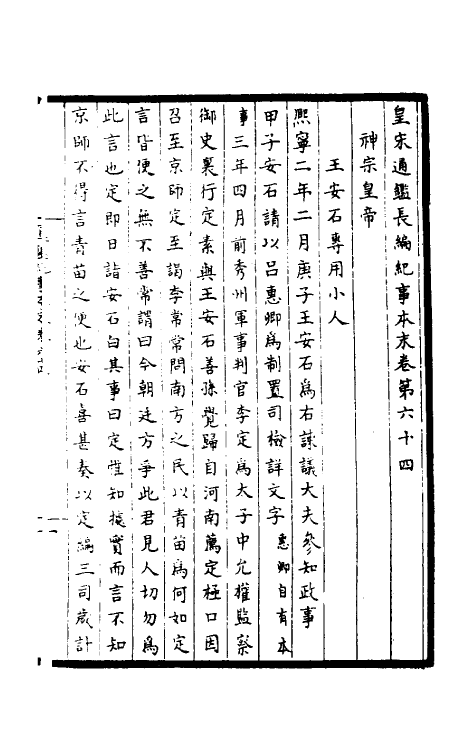 皇宋通鑑長編紀事本末卷第六十四
神宗皇帝
王安石專用小人
熈寧二年二月庚子王安石爲右諫議大夫參知政事
甲子安石請以呂惠卿爲制置司檢詳文字惠卿自有本
事三年四月前秀州軍事判官李定爲太子中允權監察
御史裏行定素與王安石善孫覺歸自河南薦定極口因
召至京師定至謁李常常問南方之民以青苗爲何如定
言皆便之無不善常謂曰今朝廷方爭此君見人切勿爲
此言也定即日詣安石白其事曰定惟知據實而言不知
京師不得言青苗之便也安石喜甚奏以定編三司歲計